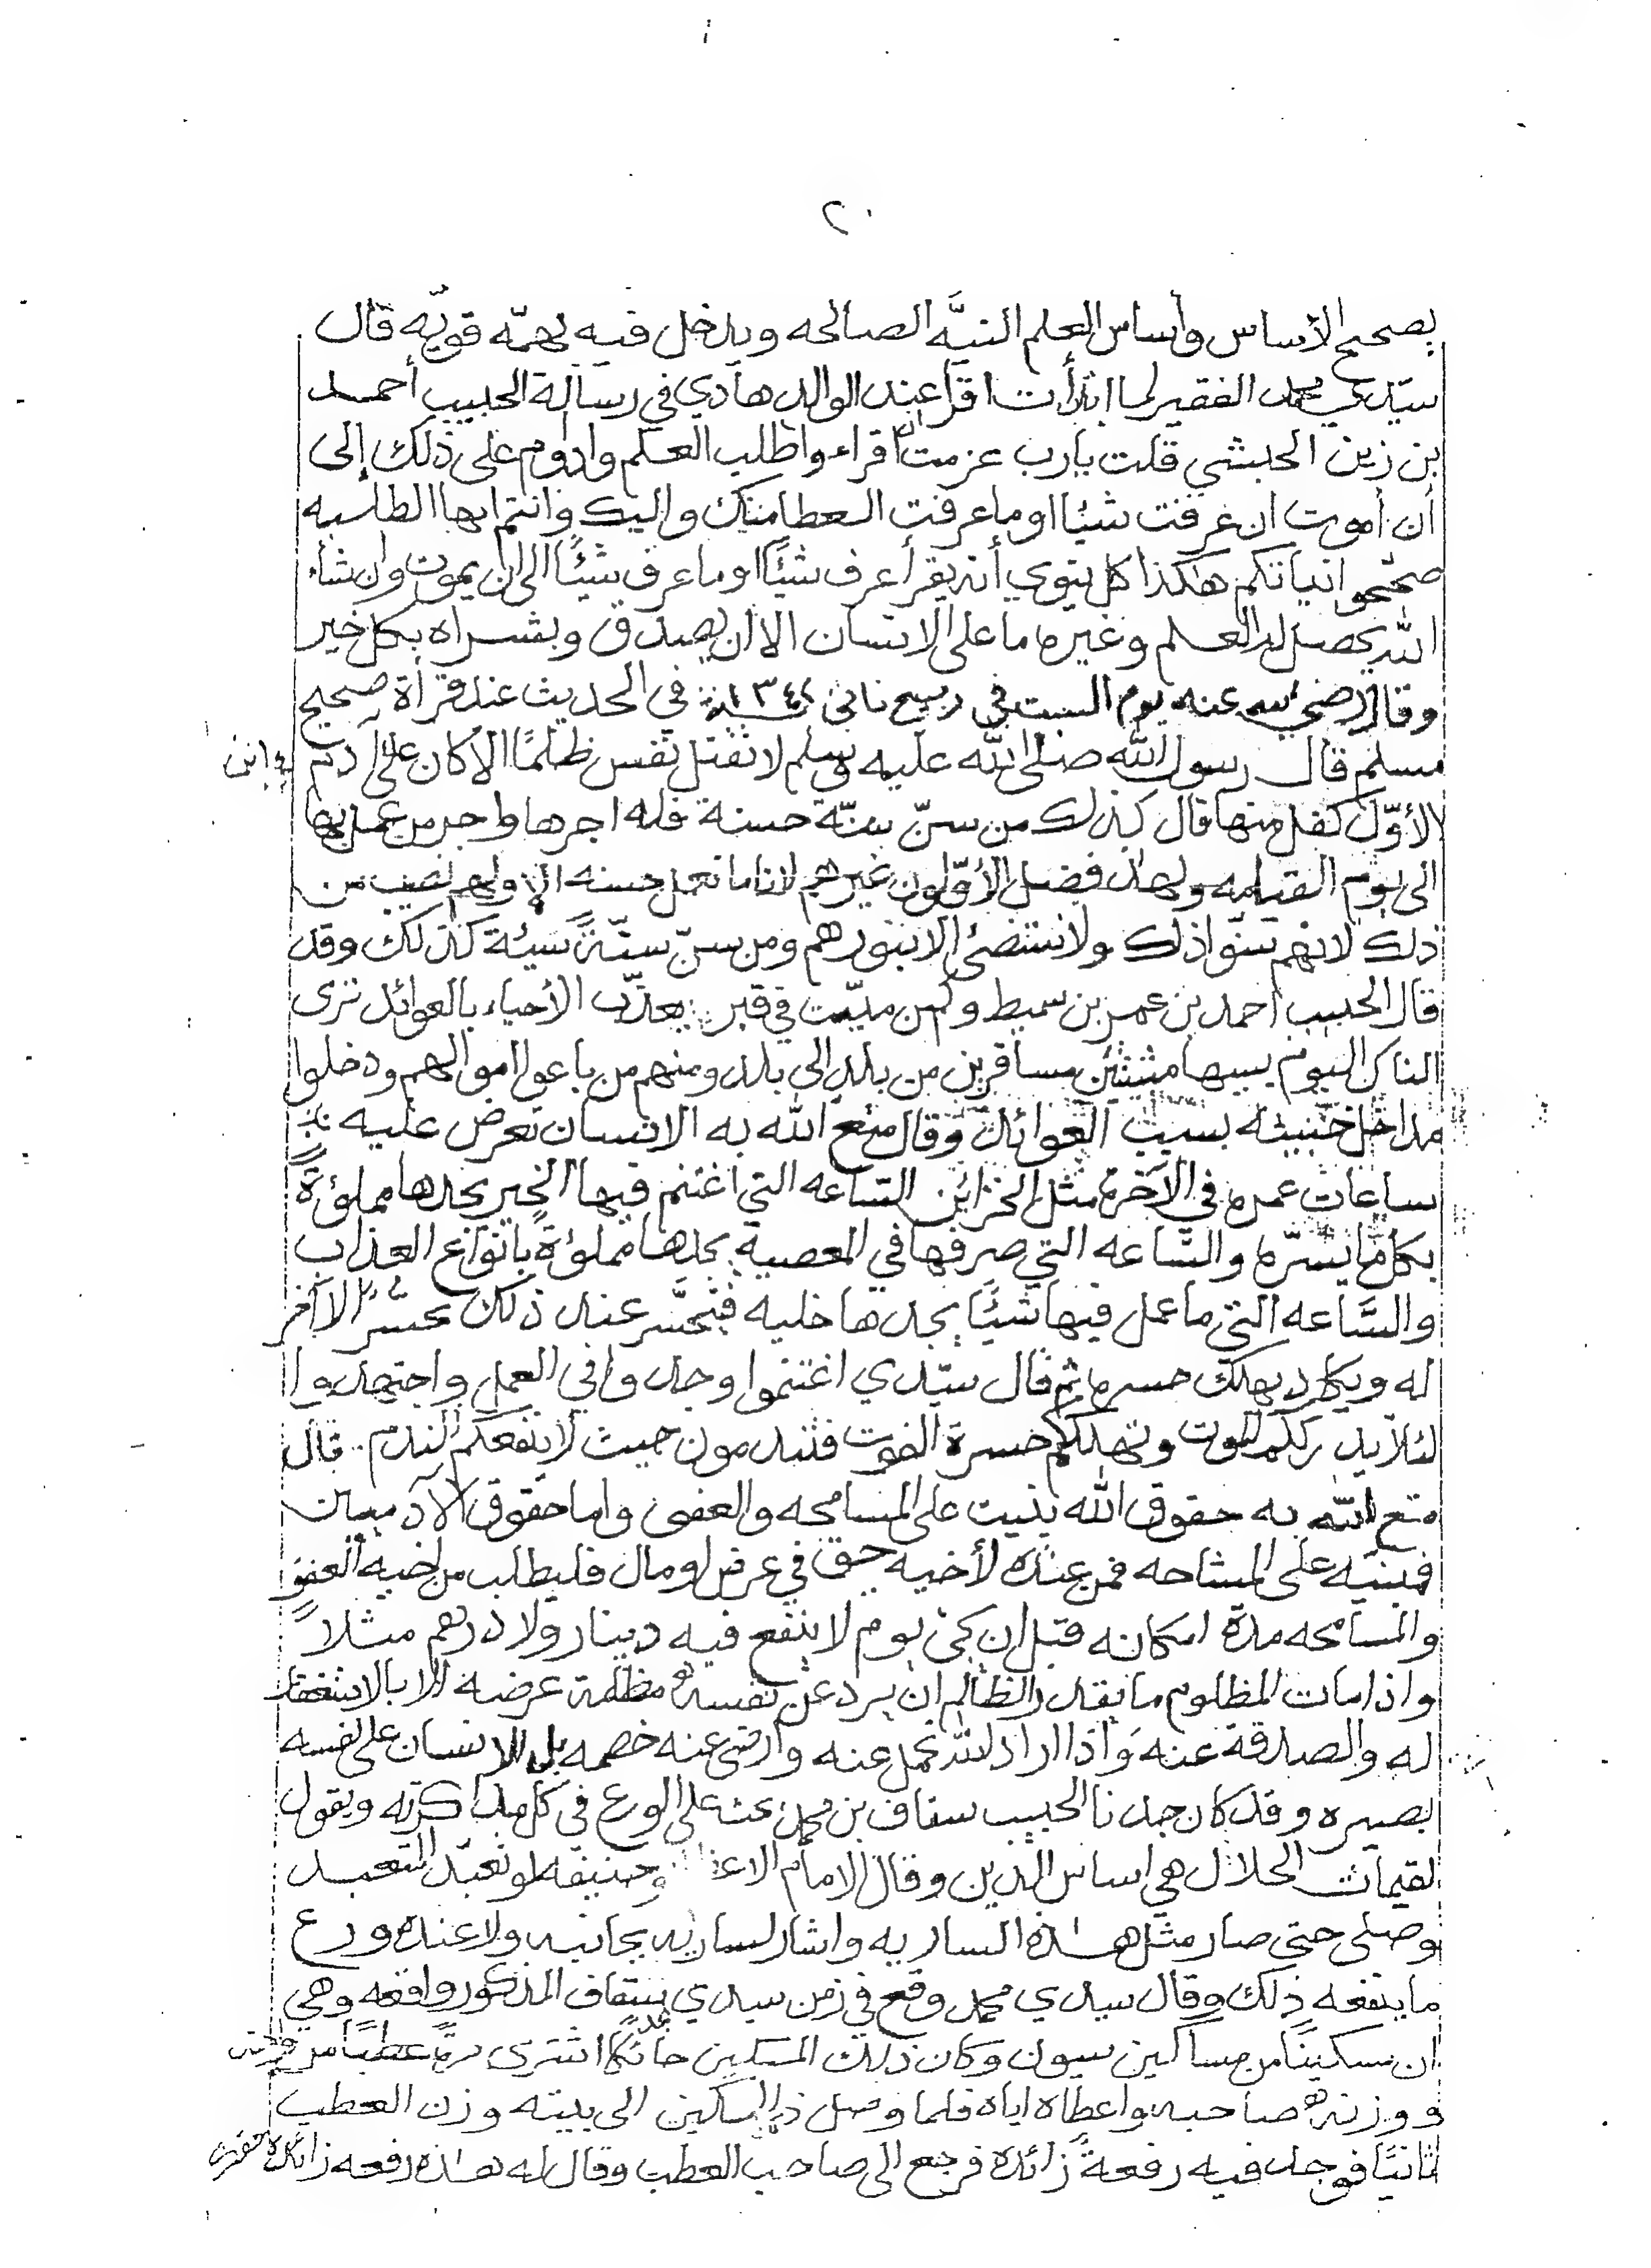 ٢٠
يصحح الأساس وأساس العلم النيَّه الصالحه ويدخل فيه بهمّه قويّه قال
سيّدي محمد الفقير لما ابتدأت اقرأ عند الوالد هادي في رسالة الحبيب أحمد
بن زين الحبشي قلت يارب عزمت أن اقراء واطلب العلم وادوم على ذلك إلى
أن أموت ان عرفت شيئا او ما عرفت العطا منك واليك وانتم ايها الطلبه
صحّحوا نياتكم هكذا كل ينوي أنه يقرأ عرف شيئًا او ما عرف شيئًا الى ان يموت وان شاء
الله يحصل له العلم وغيره ما على الانسان الا ان يصدق وبشراه بكل خير
وقال رضي الله عنه يوم السبت في ربيع ثاني سنة ١٣٤٤ في الحديث عند قرأة صحيح
مسلم قال رسول الله صلى الله عليه وسلم لا تقتل نفس ظلمًا الا كان على ابن آدم
الأوّل كفل منها قال كذلك من سنّ سنّة حسنة فله اجرها واجر من عمل بها
الى يوم القيامه ولهذا فضل الأوّلون غيرهم لاننا ما نعمل حسنه الا ولهم نصيب من
ذلك لانهم سنّوا ذلك ولا نستضئ الا بنورهم ومن سنّ سنّةً سيئة كذلك وقد
قال الحبيب احمد بن عمر بن سميط وكم من ميّت في قبر يعذّب الأحياء بالعوائد ترى
الناس اليوم بسببها مشتتين مسافرين من بلد الى بلد ومنهم من باعوا اموالهم ودخلوا
مداخل خبيثه بسبب العوائد وقال متع الله به الانسان تعرض عليه
ساعات عمره في الآخرة مثل الخزاين الساعه التي اغتنم فيها الخير يجدها مملؤةً
بكل ما يسرّه والسّاعه التي صرفها في المعصية يجدها مملؤة بانواع العذاب
والسَّاعه التي ما عمل فيها شيئًا يجدها خليه فيتحسَّر عند ذلك تحسّرًا لا آخر
له ويكاد يهلك حسره ثم قال سيّدي اغتنموا وجدوا في العمل واجتهدوا
لئلا يدرككم الموت وتهلككم حسرة الفوت فتندمون حيث لا ينفعكم الندم قال
متع الله به حقوق الله بنيت على المسامحه والعفو واما حقوق الآدميين
فمبنيه على المشاحه فمن عنده لأخيه حق في عرض او مال فليطلب من اخيه العفو
والمسامحه مدة امكانه قبل ان يجئ يوم لا ينفع فيه دينار ولا درهم مثلاً
واذا مات المظلوم ما يقدر الظالم ان يرد عن نفسه مظلمة عرضه الا بالاستغفار
له والصدقة عنه واذا اراد الله تحمل عنه وارضى عنه خصمه بل الانسان على نفسه
بصيره وقد كان جدنا الحبيب سقاف بن محمد يحث على الورع في كل مذاكرته ويقول
لقيمات الحلال هي اساس الدين وقال الامام حنيفه لو تعبّد المتعبد
وصلى حتى صار مثل هذه الساريه واشار لساريه بجانبه ولا عنده ورع
ما ينفعه ذلك وقال سيدي محمد وقع في زمن سيدي سقاف المذكور واقعه وهي
ان مسكينًا من مساكين سيون وكان ذلك المسكين حائكًا اشترى مرّه عطبًا من
ووزنه صاحبه واعطاه اياه فلما وصل ذا المسكين الى بيته وزن العطب
ثانيًا فوجد فيه رفعةً زائدة فرجع الى صاحب العطب وقال له هذه رفعه زائدة